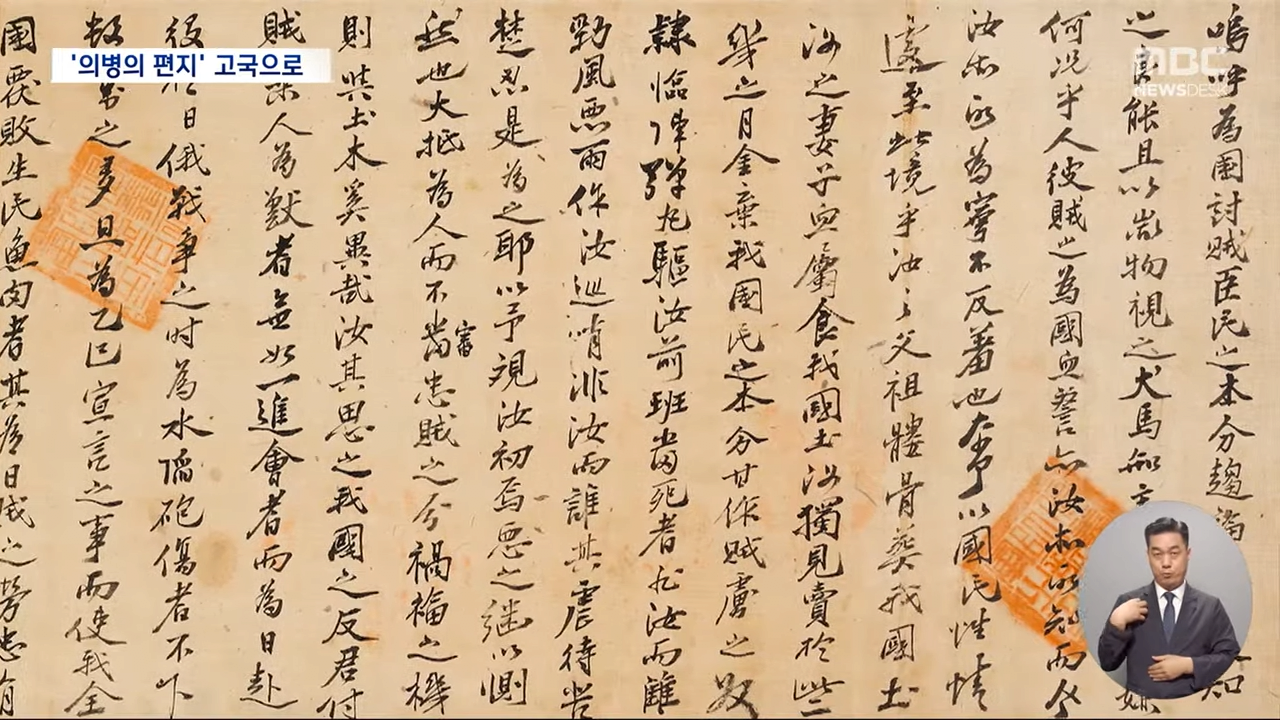 '의병의 편지' 고국으로
MBC
NEWSDESK
嗚呼為國討賊臣民之本分趨 知
之良能且以 物視之犬馬知主
何況乎人彼賊之為國血誓亦汝 所知而今
汝 為寧不反羞也 以國民性情
遽至此境乎汝之父祖 骨葬我國土
汝之妻子血屬食我國土汝獨見賣於些
幾之月金棄我國民之本分甘作賊虜之奴
隸臨陣彈丸驅汝前班當死者非汝而誰
勁風惡雨作汝巡哨非汝而誰其虐待若
楚忍是為之耶以予視汝初焉惡之繼以惻
然也大抵為人而不審當忠賊之分禍福之機
則與土木奚異哉汝其思之我國之反君付
賊 人為獸者無如一進會者而為日赴
役於日俄戰爭之時為水陷砲傷者不下
數萬之多且為乙巳宣言之事而使我全
國 敗生民魚肉者其為日賊之勞忠有